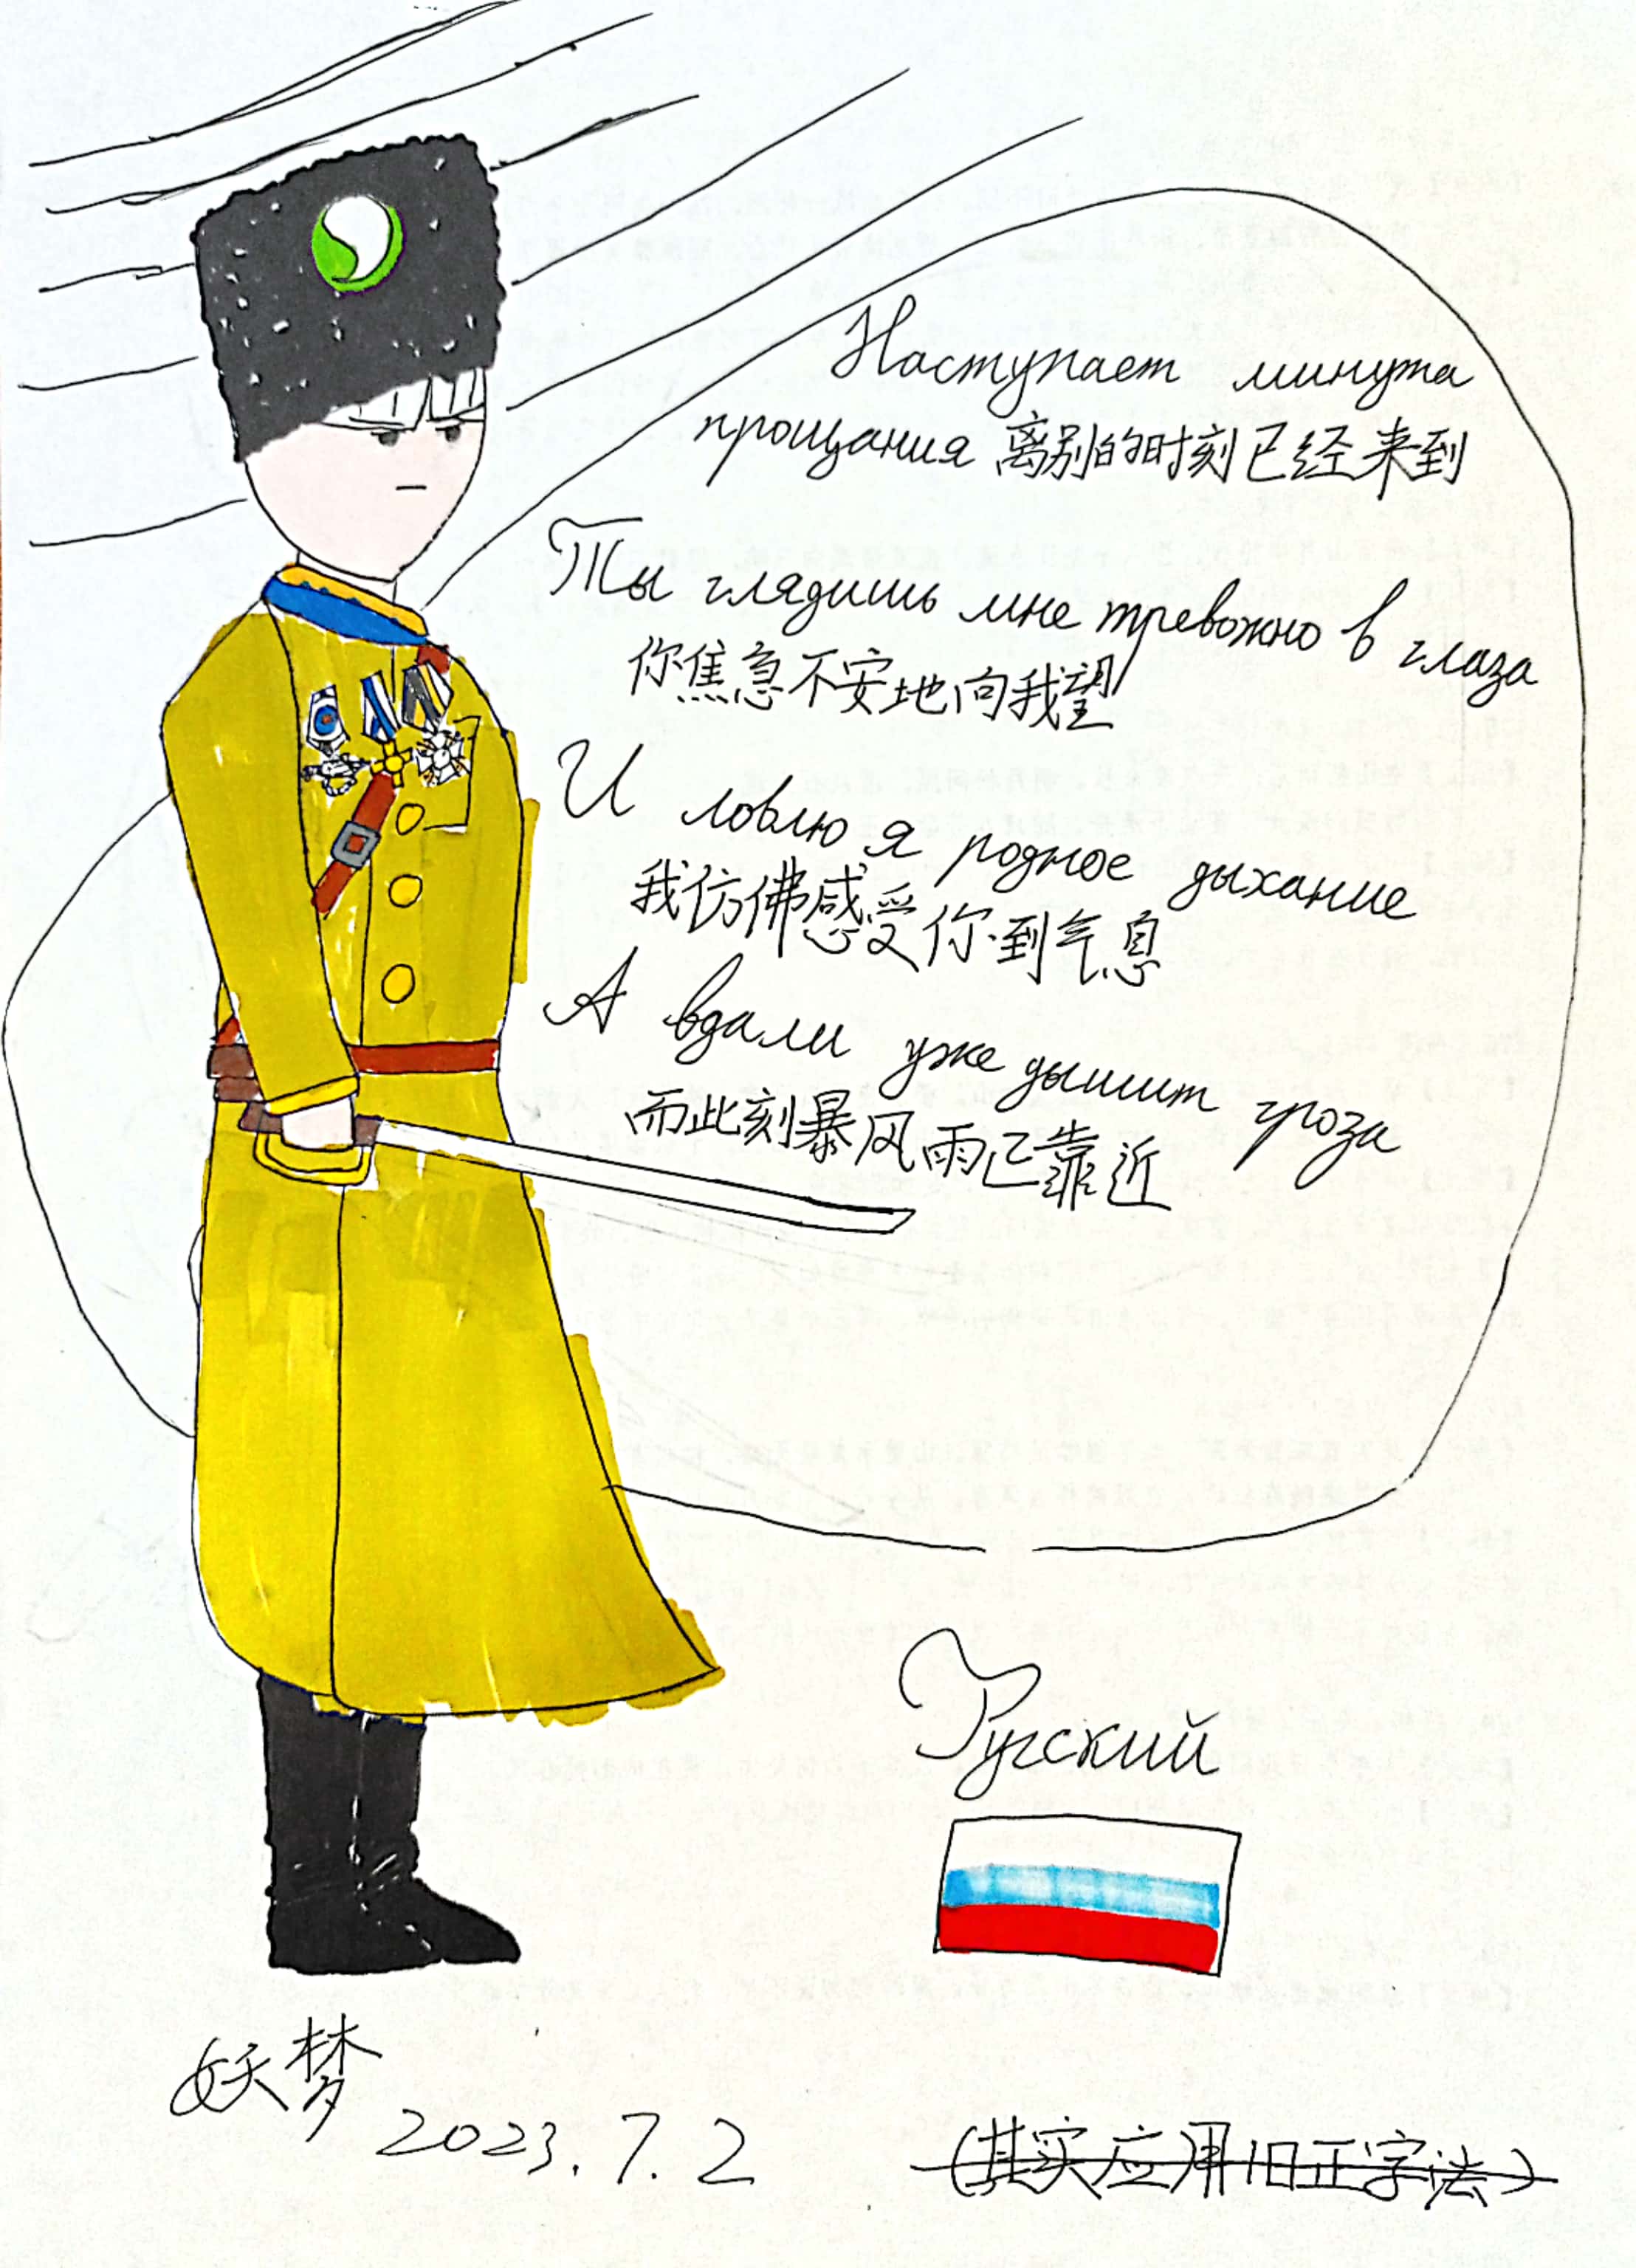 Наступает минута
прощания 离别的时刻已经来到
Ты глядишь мне тревожно в глаза
你焦急不安地向我望
И ловлю я родное дыхание
我仿佛感受你到气息
А вдали уже дышит гроза
而此刻暴风雨已靠近
Русский
妖梦
2023.7.2
(其实应用旧正字法)